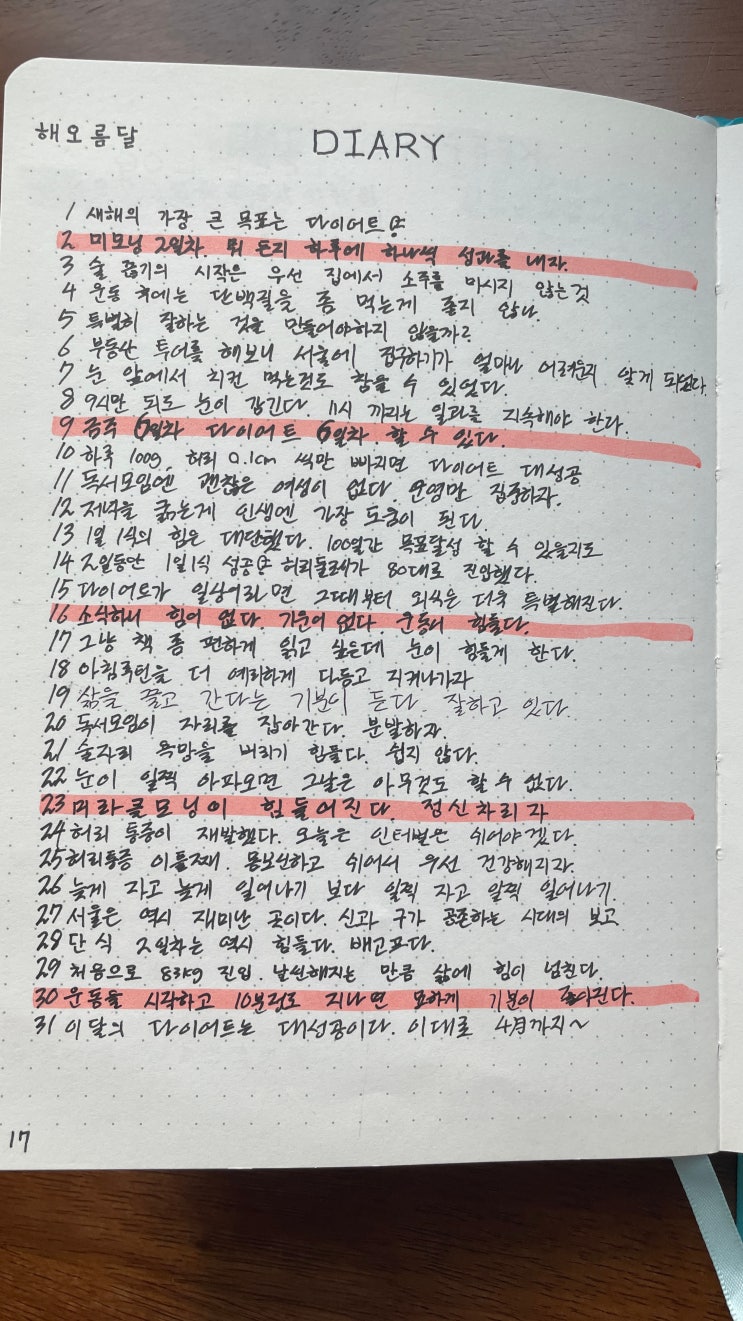 해오름달
DIARY
1 새해의 가장 큰 목표는 다이어트
2 미모닝 2일차. 뭐 든지 하루에 하나씩 성과를 내자.
3 술 끊기의 시작은 우선 집에서 소주를 마시지 않는것
4 운동 후에는 단백질을 좀 먹는게 좋지 않나.
5 특별히 잘하는 것을 만들어야하지 않을까?
6 부동산 투어를 해보니 서울에 집구하기가 얼마나 어려운지 알게 되었다.
7 눈 앞에서 치킨 먹는것도 참을 수 있었다.
8 9시만 되도 눈이 감긴다. 11시 까지는 일과를 지속해야 한다.
9 금주 6일차 다이어트 6일차 할 수 있다.
10 하루 100g, 허리 0.1cm 씩만 빠지면 다이어트 대성공
11 독서모임엔 괜찮은 여성이 없다. 운영만 집중하자.
12 저녁을 굶는게 인생엔 가장 도움이 된다.
13 1일 1식의 힘은 대단했다. 100일간 목표달성 할 수 있을지도
14 2일동안 1일1식 성공 허리둘레가 80대로 진입했다.
15 다이어트가 일상이라면 그때부터 외식은 더욱 특별해진다.
16 소식하니 힘이 없다. 기운이 없다. 운동이 힘들다.
17 그냥 책 좀 편하게 읽고 싶은데 눈이 힘들게 한다.
18 아침루틴을 더 예리하게 다듬고 지켜나가자
19 삶을 끌고 간다는 기분이 든다. 잘하고 있다.
20 독서모임이 자리를 잡아간다. 분발하자.
21 술자리 욕망을 버리기 힘들다. 쉽지 않다.
22 눈이 일찍 아파오면 그날은 아무것도 할 수 없다.
23 미라클모닝이 힘들어진다. 정신차리자
24 허리 통증이 재발했다. 오늘은 인터벌은 쉬어야겠다.
25 허리통증 이틀째. 몸보신하고 쉬어서 우선 건강해지자.
26 늦게 자고 늦게 일어나기 보다 일찍 자고 일찍 일어나기
27 서울은 역시 재미난 곳이다. 신과 구가 공존하는 시대의 보고
28 단식 2일차는 역시 힘들다. 배고프다.
29 처음으로 83kg 진입. 날씬해지는 만큼 삶에 힘이 넘친다.
30 운동을 시작하고 10분정도 지나면 묘하게 기분이 좋아진다.
31 이달의 다이어트는 대성공이다. 이대로 4月까지~
17